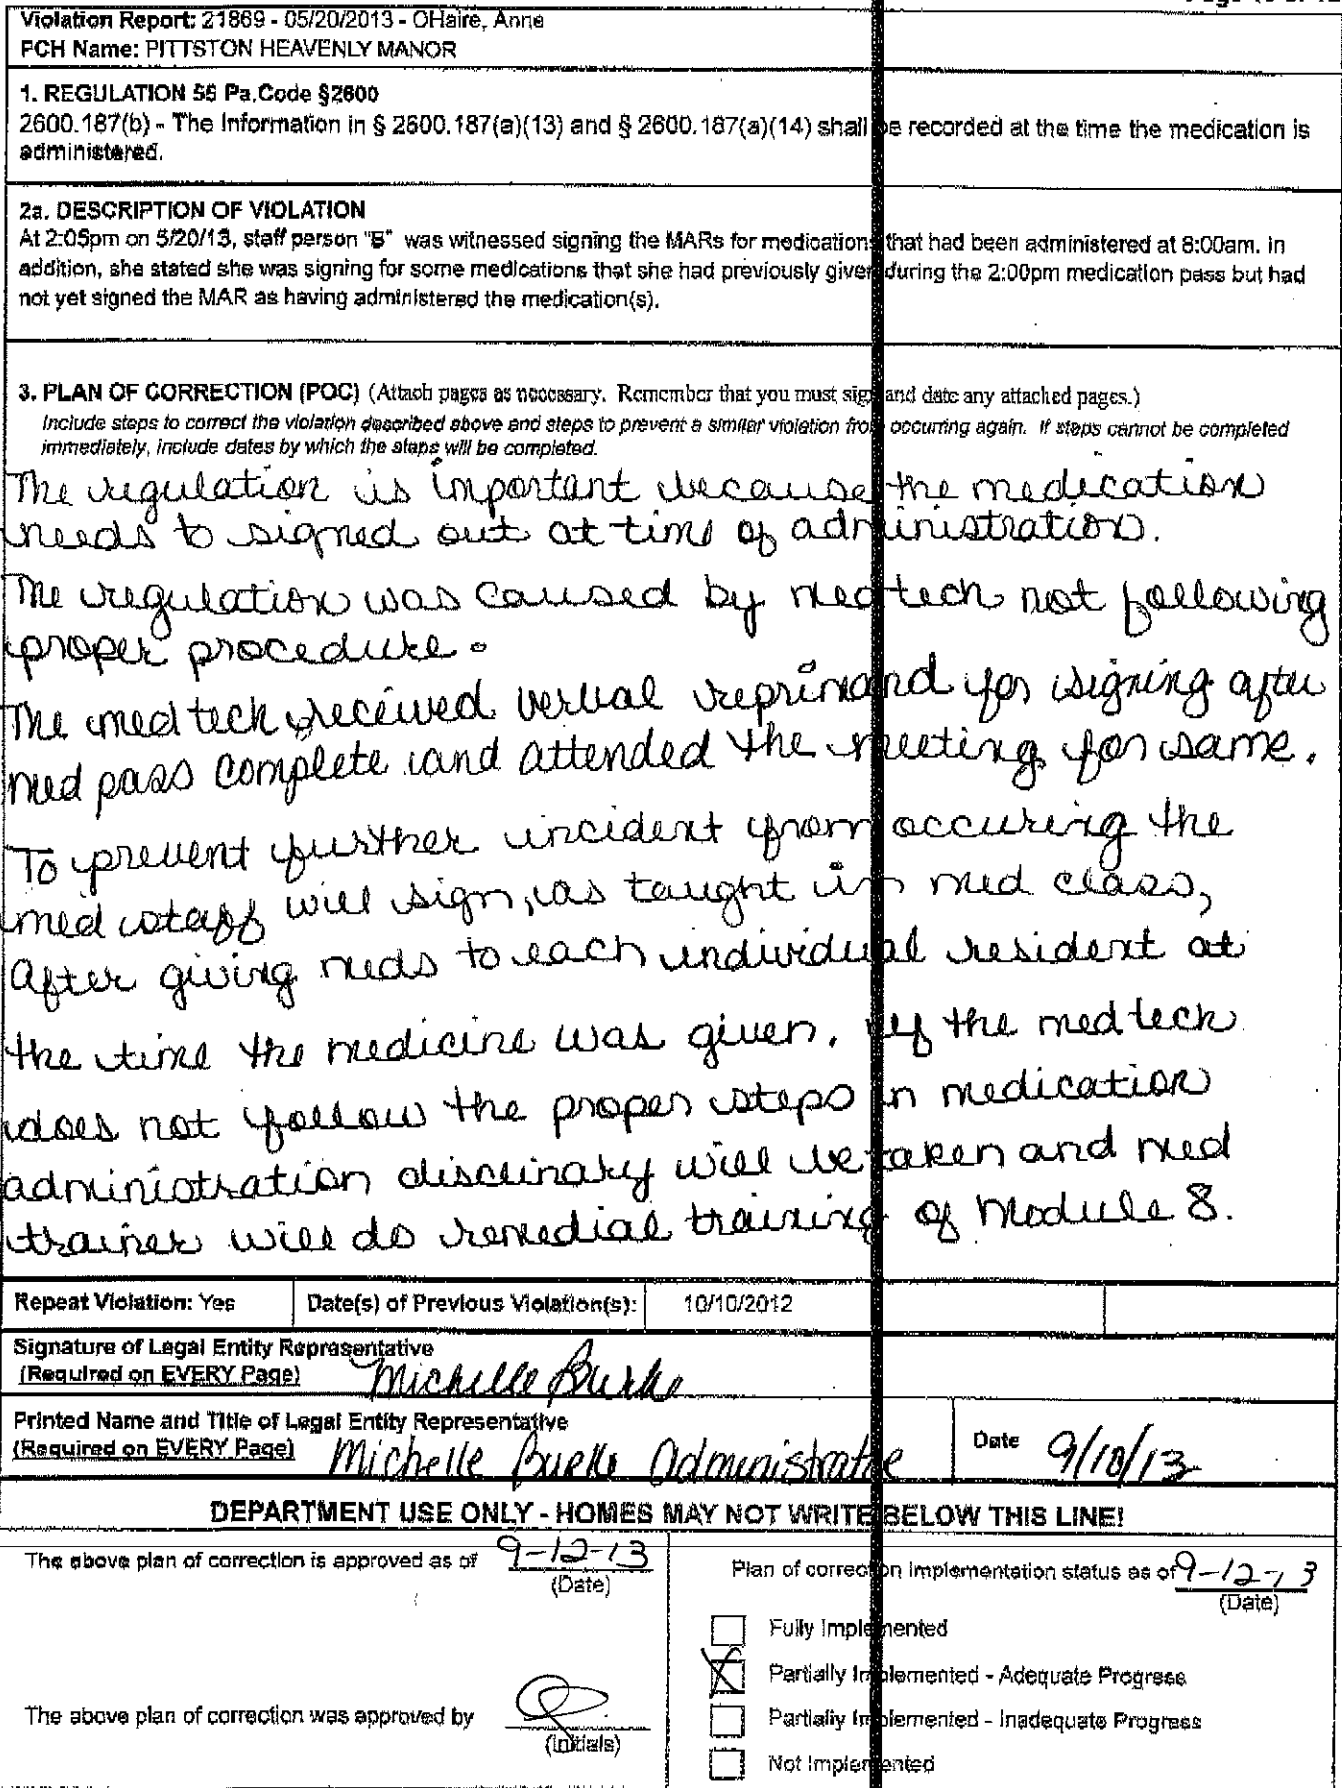 Violation Report: 21869 - 05/20/2013 - OHaire, Anne
PCH Name: PITTSTON HEAVENLY MANOR
1. REGULATION 55 Pa.Code §2600
2600.187(b) - The Information in § 2600.187(a)(13) and § 2600.187(a)(14) shall be recorded at the time the medication is
administered.
2a. DESCRIPTION OF VIOLATION
At 2:05pm on 5/20/13, staff person "B" was witnessed signing the MARs for medications that had been administered at 8:00am. In
addition, she stated she was signing for some medications that she had previously given during the 2:00pm medication pass but had
not yet signed the MAR as having administered the medication(s).
3. PLAN OF CORRECTION (POC) (Attach pages as necessary. Remember that you must sign and date any attached pages.)
Include steps to correct the violation described above and steps to prevent a similar violation from occurring again. If steps cannot be completed
immediately, include dates by which the steps will be completed.
The regulation is important because the medication
needs to signed out at time of administration.
The regulation was caused by med tech not following
proper procedure.
The med tech received verbal reprimand for signing after
med pass complete and attended the meeting for same.
To prevent further incident from occuring the
med staff will sign, as taught in med class,
after giving meds to each individual resident at
the time the medicine was given. If the med tech
does not follow the proper steps in medication
administration discinary will be taken and med
trainer will do remedial training of Module 8.
Repeat Violation: Yes Date(s) of Previous Violation(s): 10/10/2012
Signature of Legal Entity Representative
(Required on EVERY Page) Michelle Burke
Printed Name and Title of Legal Entity Representative
(Required on EVERY Page) Michelle Burke Administrator Date 9/10/13
DEPARTMENT USE ONLY - HOMES MAY NOT WRITE BELOW THIS LINE!
The above plan of correction is approved as of 9-12-13
(Date)
Plan of correction implementation status as of 9-12-13
(Date)
Fully Implemented
Partially Implemented - Adequate Progress
Partially Implemented - Inadequate Progress
Not Implemented
The above plan of correction was approved by
(Initials)